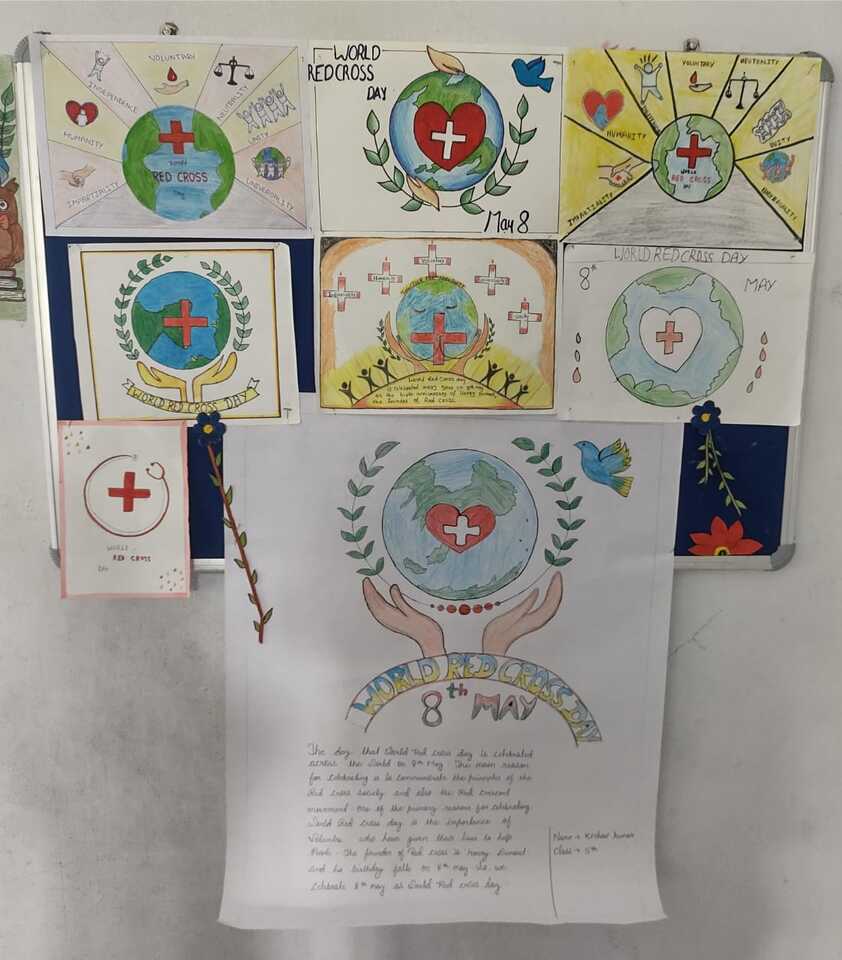 VOLUNTARY
INDEPENDENCE
NEUTRALITY
HUMANITY
UNITY
IMPARTIALITY
UNIVERSALITY
WORLD
RED CROSS
DAY
WORLD
RED CROSS
DAY
May 8
VOLUNTARY
NEUTRALITY
HUMANITY
UNITY
IMPARTIALITY
WORLD
RED CROSS
DAY
WORLD RED CROSS DAY
Humanity
Unity
World Red Cross day
is celebrated every year on 8th may
as the birth anniversary of Henry
the founder of Red Cross.
WORLD RED CROSS DAY
8th
MAY
WORLD
RED CROSS
DAY
WORLD RED CROSS DAY
8th MAY
The day that World Red cross day is celebrated
across the World on 8th May. The main reason
for celebrating is to commemorate the principles of the
Red cross society and also the Red crescent
movement one of the primary reasons for celebrating
World Red cross day is the importance of
who have given their lives to help
The founder of Red cross is Henry Dunant
and his birthday falls on 8th may so we
celebrate 8th may as World Red cross day
Name → kumar
Class → 5th